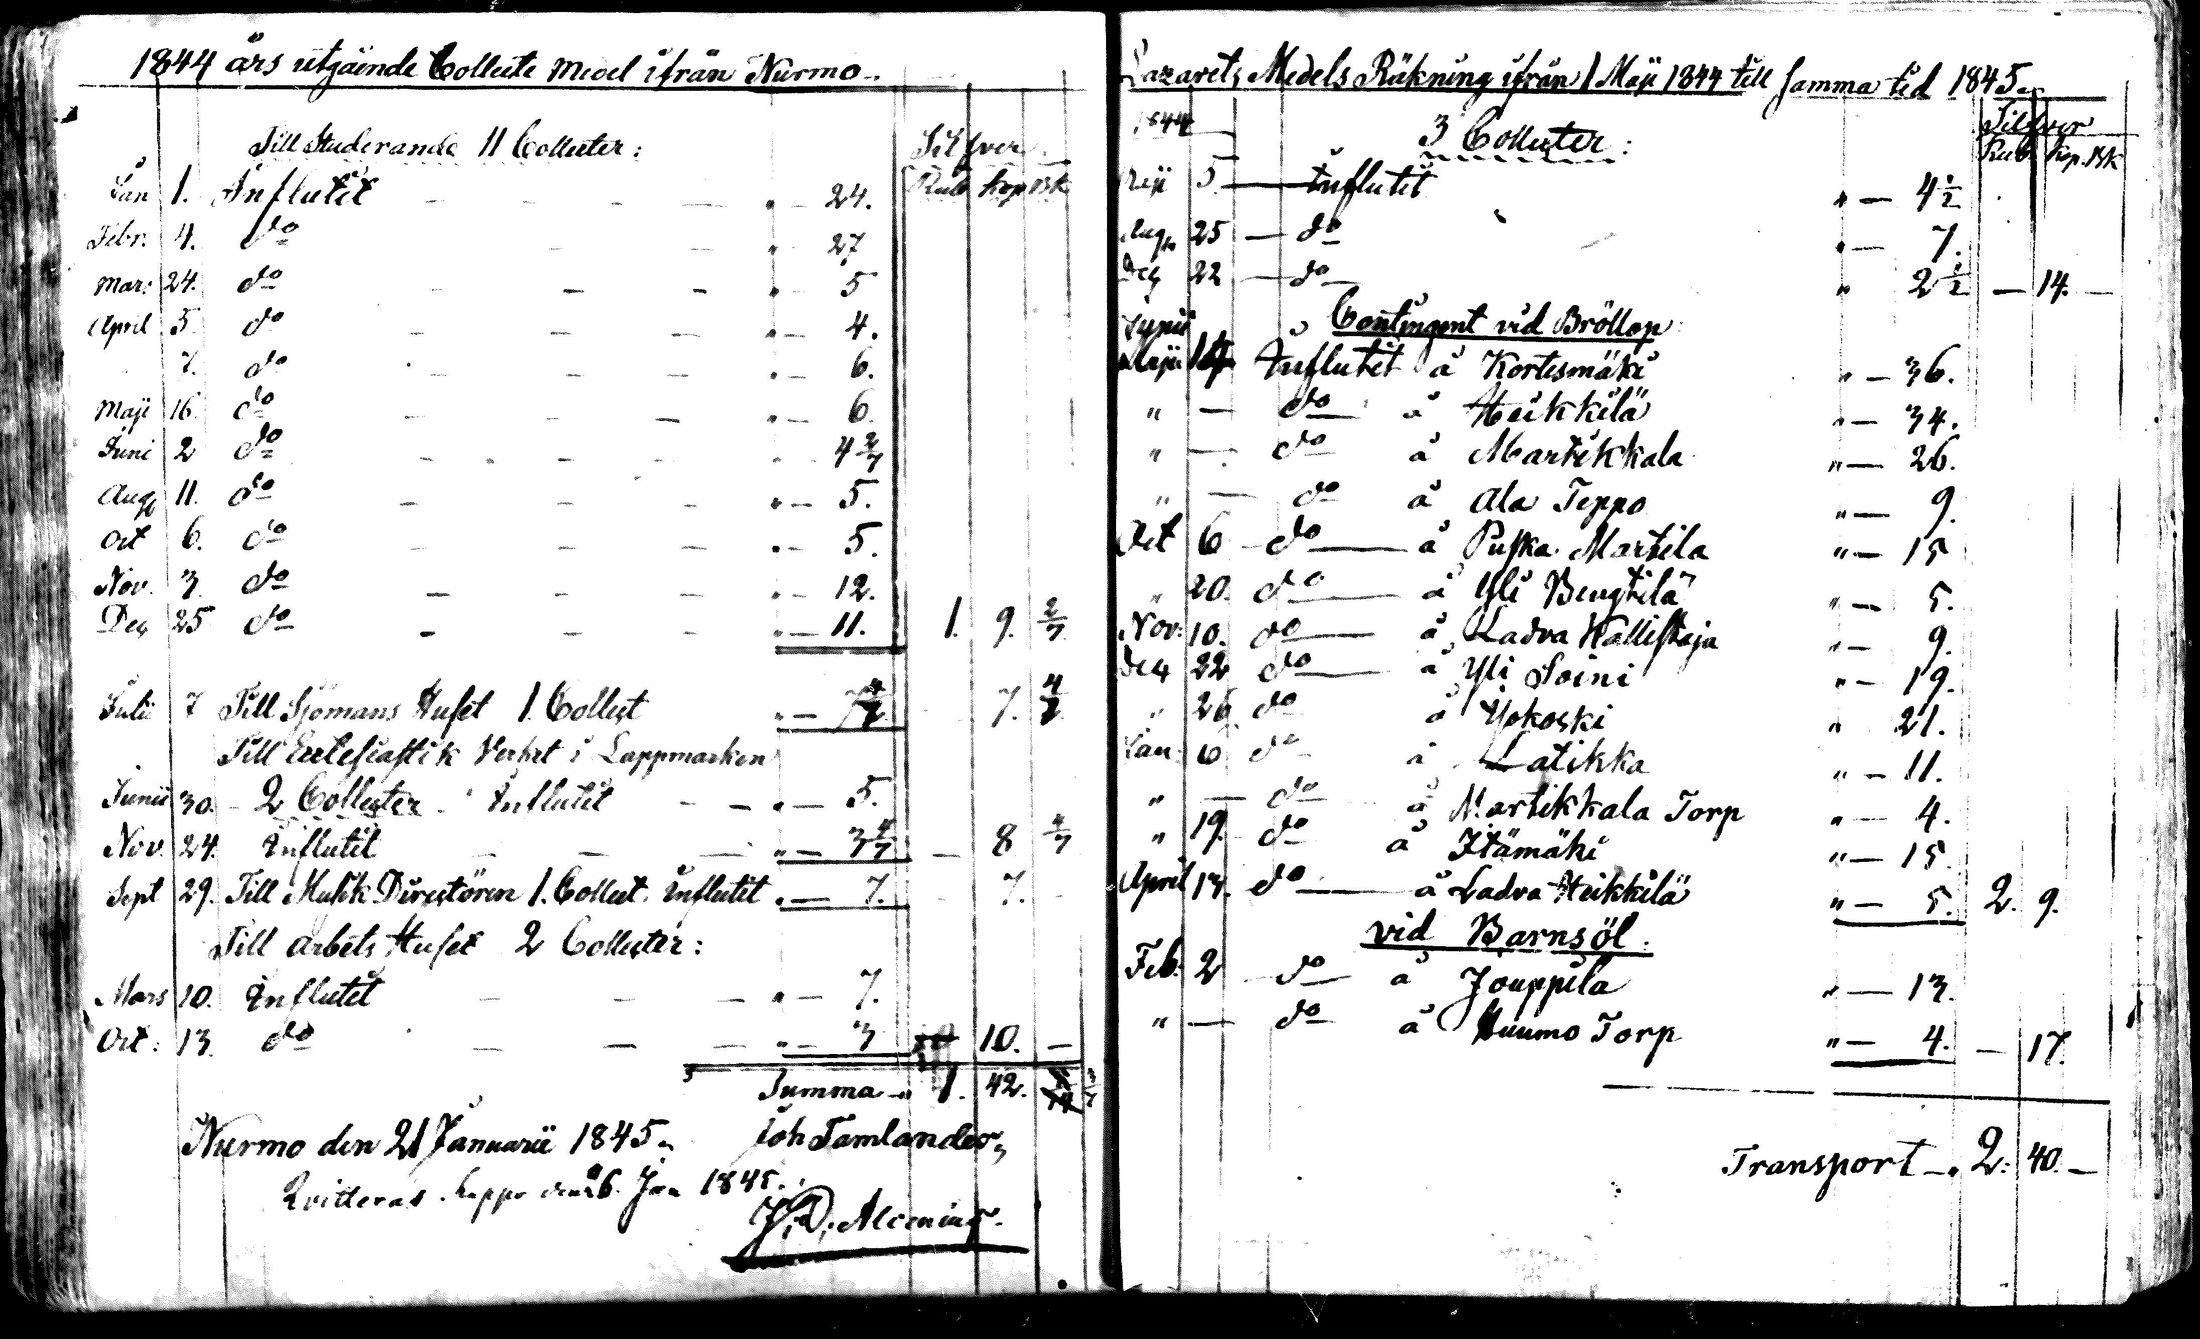 1844 års utgående Collecte Medel ifrån Nurmo.
Till Studerande 11 Collecter:
Silfver
Rub kop Bk
Jan 1. Influtit " — 24.
Febr. 4. do " 27
Mar: 24. do " — 5
April 5 do " — 4.
7. do " — 6.
Maji 16. do " — 6.
Juni 2 do 4 2/7
Aug 11. do " — 5.
Oct 6. do " — 5.
Nov. 3. do " — 12.
Dec 25 do " — 11. 1. 9. 2/7
Julii 7 Till Sjömans Huset 1. Collect " — 7. 4/7
Till Ecclesiastik Verket i Lappmarken
Junii 30. — 2 Collecter Influtit " — 5.
Nov. 24. Influtit " — 3 4/7 — 8 4/7
Sept 29. Till Musik Directören 1. Collect. Influtit " — 7. 7. -
Till arbets Huset 2 Collecter:
Mars 10. Influtit " — 7.
Oct: 13. do " — 3 10. —
Summa " 1. 42. 3/7
Nurmo den 21 Januarii 1845. Joh Tamlander
Qvitteras. Lappo den 26. Jan 1845.
J. D. Alcenius.
Lazarets Medels Räkning ifrån 1 Maji 1844 till samma tid 1845.
1844 3 Collecter:
Silfver
Rub. kop. Bk
Maji 5 — Influtit " — 4 1/2
Aug 25 — do " — 7.
Dec 22 — do " 2 1/2 — 14. —
Contingent vid Bröllop
Junii
Maji Influtit å Kortesmäki " — 36.
" — do å Heikkilä " — 34.
" — do å Martikkala " — 26.
" — do å Ala Teppo " — 9.
Oct 6 — do å Puska Martila " — 15
" 20. do å Yli Bengtilä " — 5.
Nov: 10. do å Ladva Hallistaja " — 9.
Dec 22 do å Yli Soini " — 19.
" 26 do å Yokoski " 21.
Jan. 6 do å Latikka " — 11.
" — do å Martikkala Torp " — 4.
" 19. do å Itämäki " — 15
April 13. do å Ladva Heikkilä " — 5. 2. 9.
vid Barnsöl.
Feb. 2 — do å Jouppila " — 13.
" — do å Huumo Torp " — 4. — 17.
Transport — " 2: 40. —